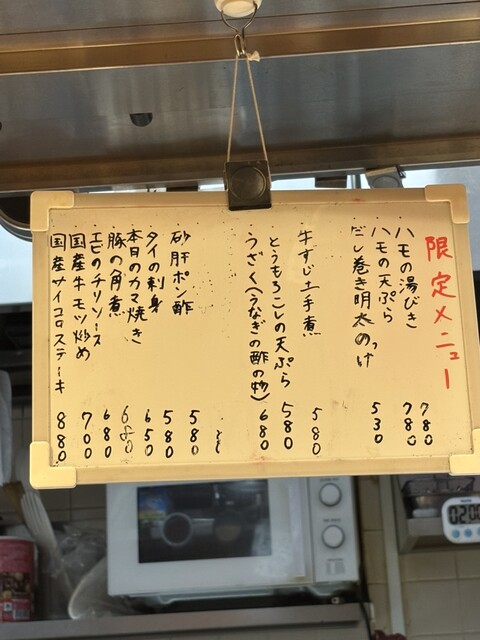 限定メニュー
・ハモの湯びき 780
・ハモの天ぷら 780
・だし巻き明太のっけ 530
・牛すじ土手煮 580
・とうもろこしの天ぷら 580
・うざく(うなぎの酢の物) 680
・砂肝ポン酢 580
・タイの刺身 580
・本日のカマ焼き 650
・豚の角煮 680
・エビのチリソース 680
・国産牛モツ炒め 700
・国産サイコロステーキ 880
02:00